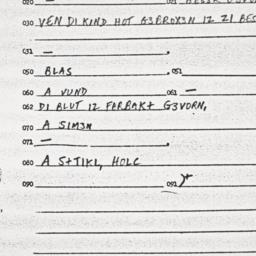 030 VEN DI KIND HOT G3BROX3N IZ ZI
031 —
050 BLAS 051
060 A VUND 061 —
062 DI BLUT IZ FARBAK+ G3VORN,
070 A SIM3N
072 —
080 A S+TIKL, HOLC
090 092 y+